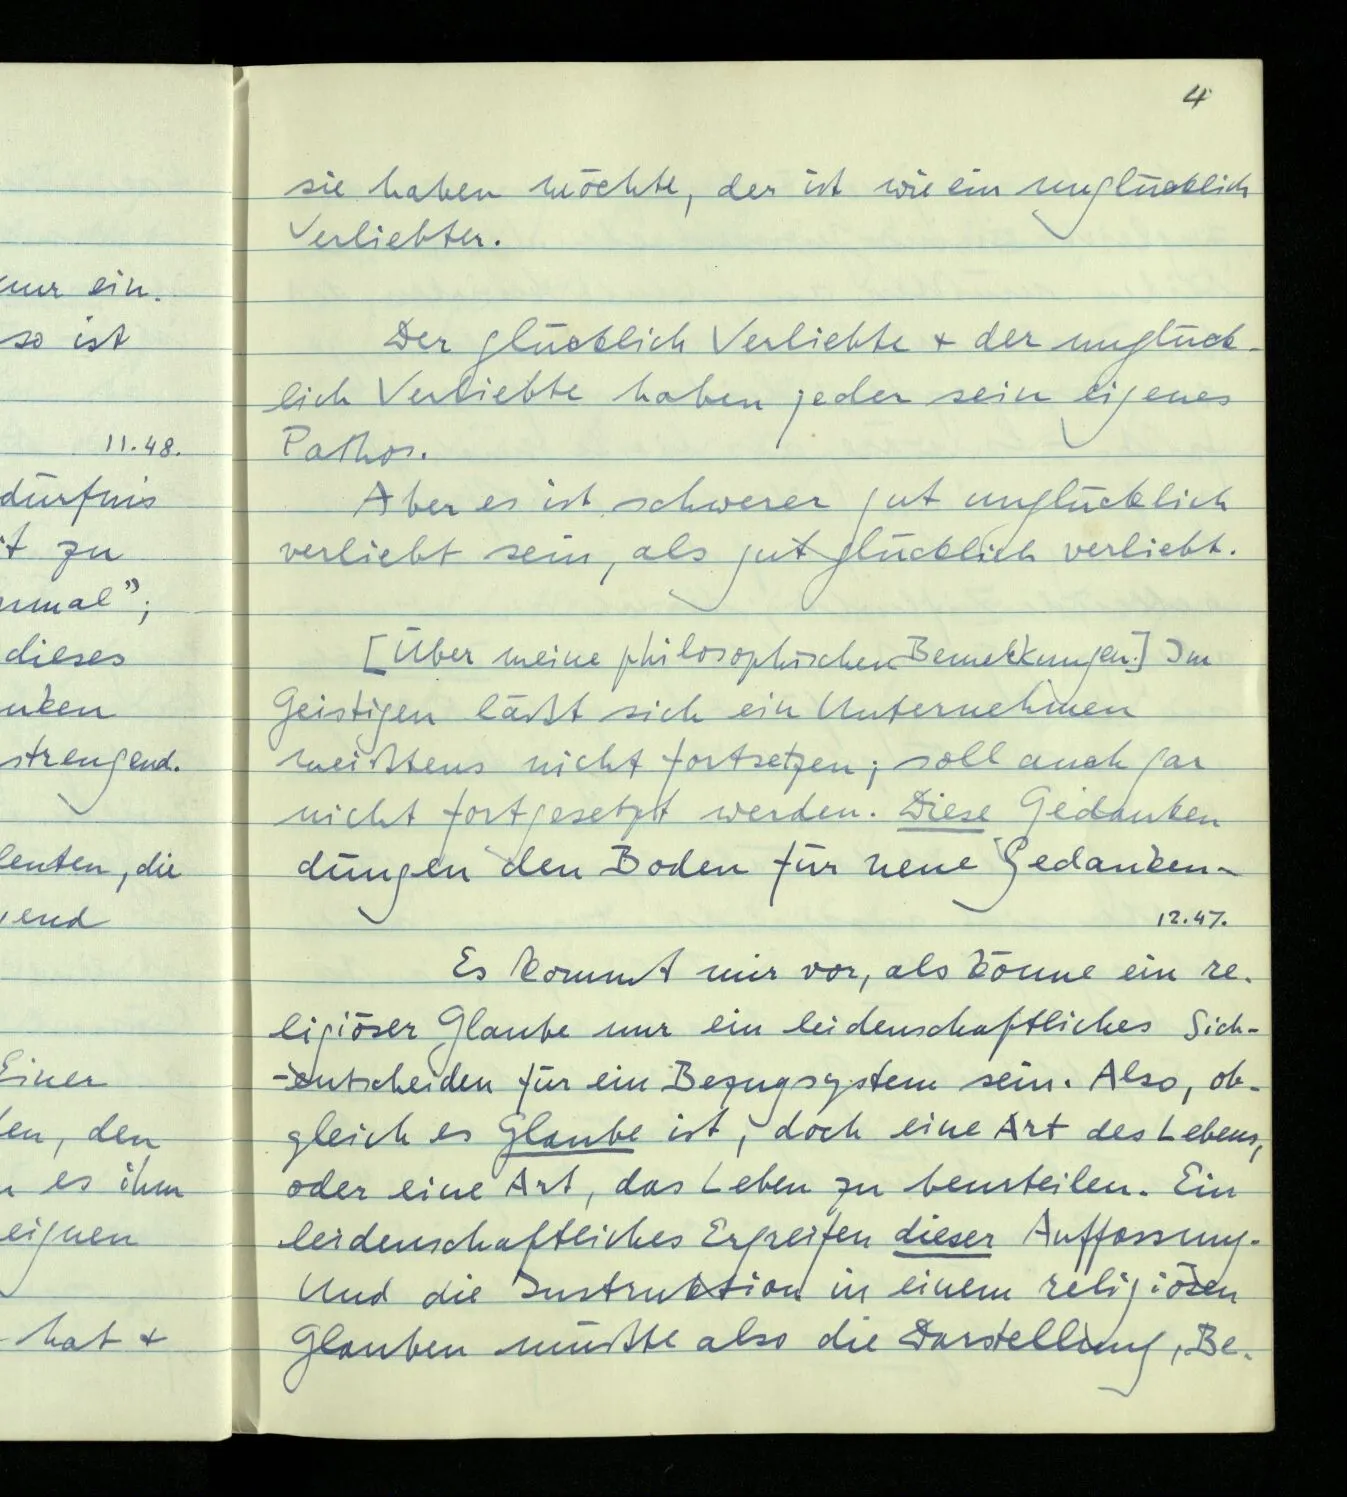 nur ein.
so ist
11.48.
dürfnis
zu
dieses
strengend.
, die
Einer
, den
es ihm
eignen
hat +
4
sie haben möchte, der ist wie ein unglücklich
Verliebter.
Der glücklich Verliebte + der unglück-
lich Verliebte haben jeder sein eigenes
Pathos.
Aber es ist schwerer gut unglücklich
verliebt sein, als gut glücklich verliebt.
[Über meine philosophischen Bemerkungen.] Im
Geistigen läßt sich ein Unternehmen
meißtens nicht fortsetzen; soll auch gar
nicht fortgesetzt werden. Diese Gedanken
düngen den Boden für neue Gedanken.
12.47.
Es kommt mir vor, als könne ein re-
ligiöser Glaube nur ein leidenschaftliches Sich-
-entscheiden für ein Bezugsystem sein. Also, ob-
gleich es Glaube ist, doch eine Art des Lebens,
oder eine Art, das Leben zu beurteilen. Ein
leidenschaftliches Ergreifen dieser Auffassung.
Und die Instruktion in einem religiösen
Glauben müßte also die Darstellung, Be-